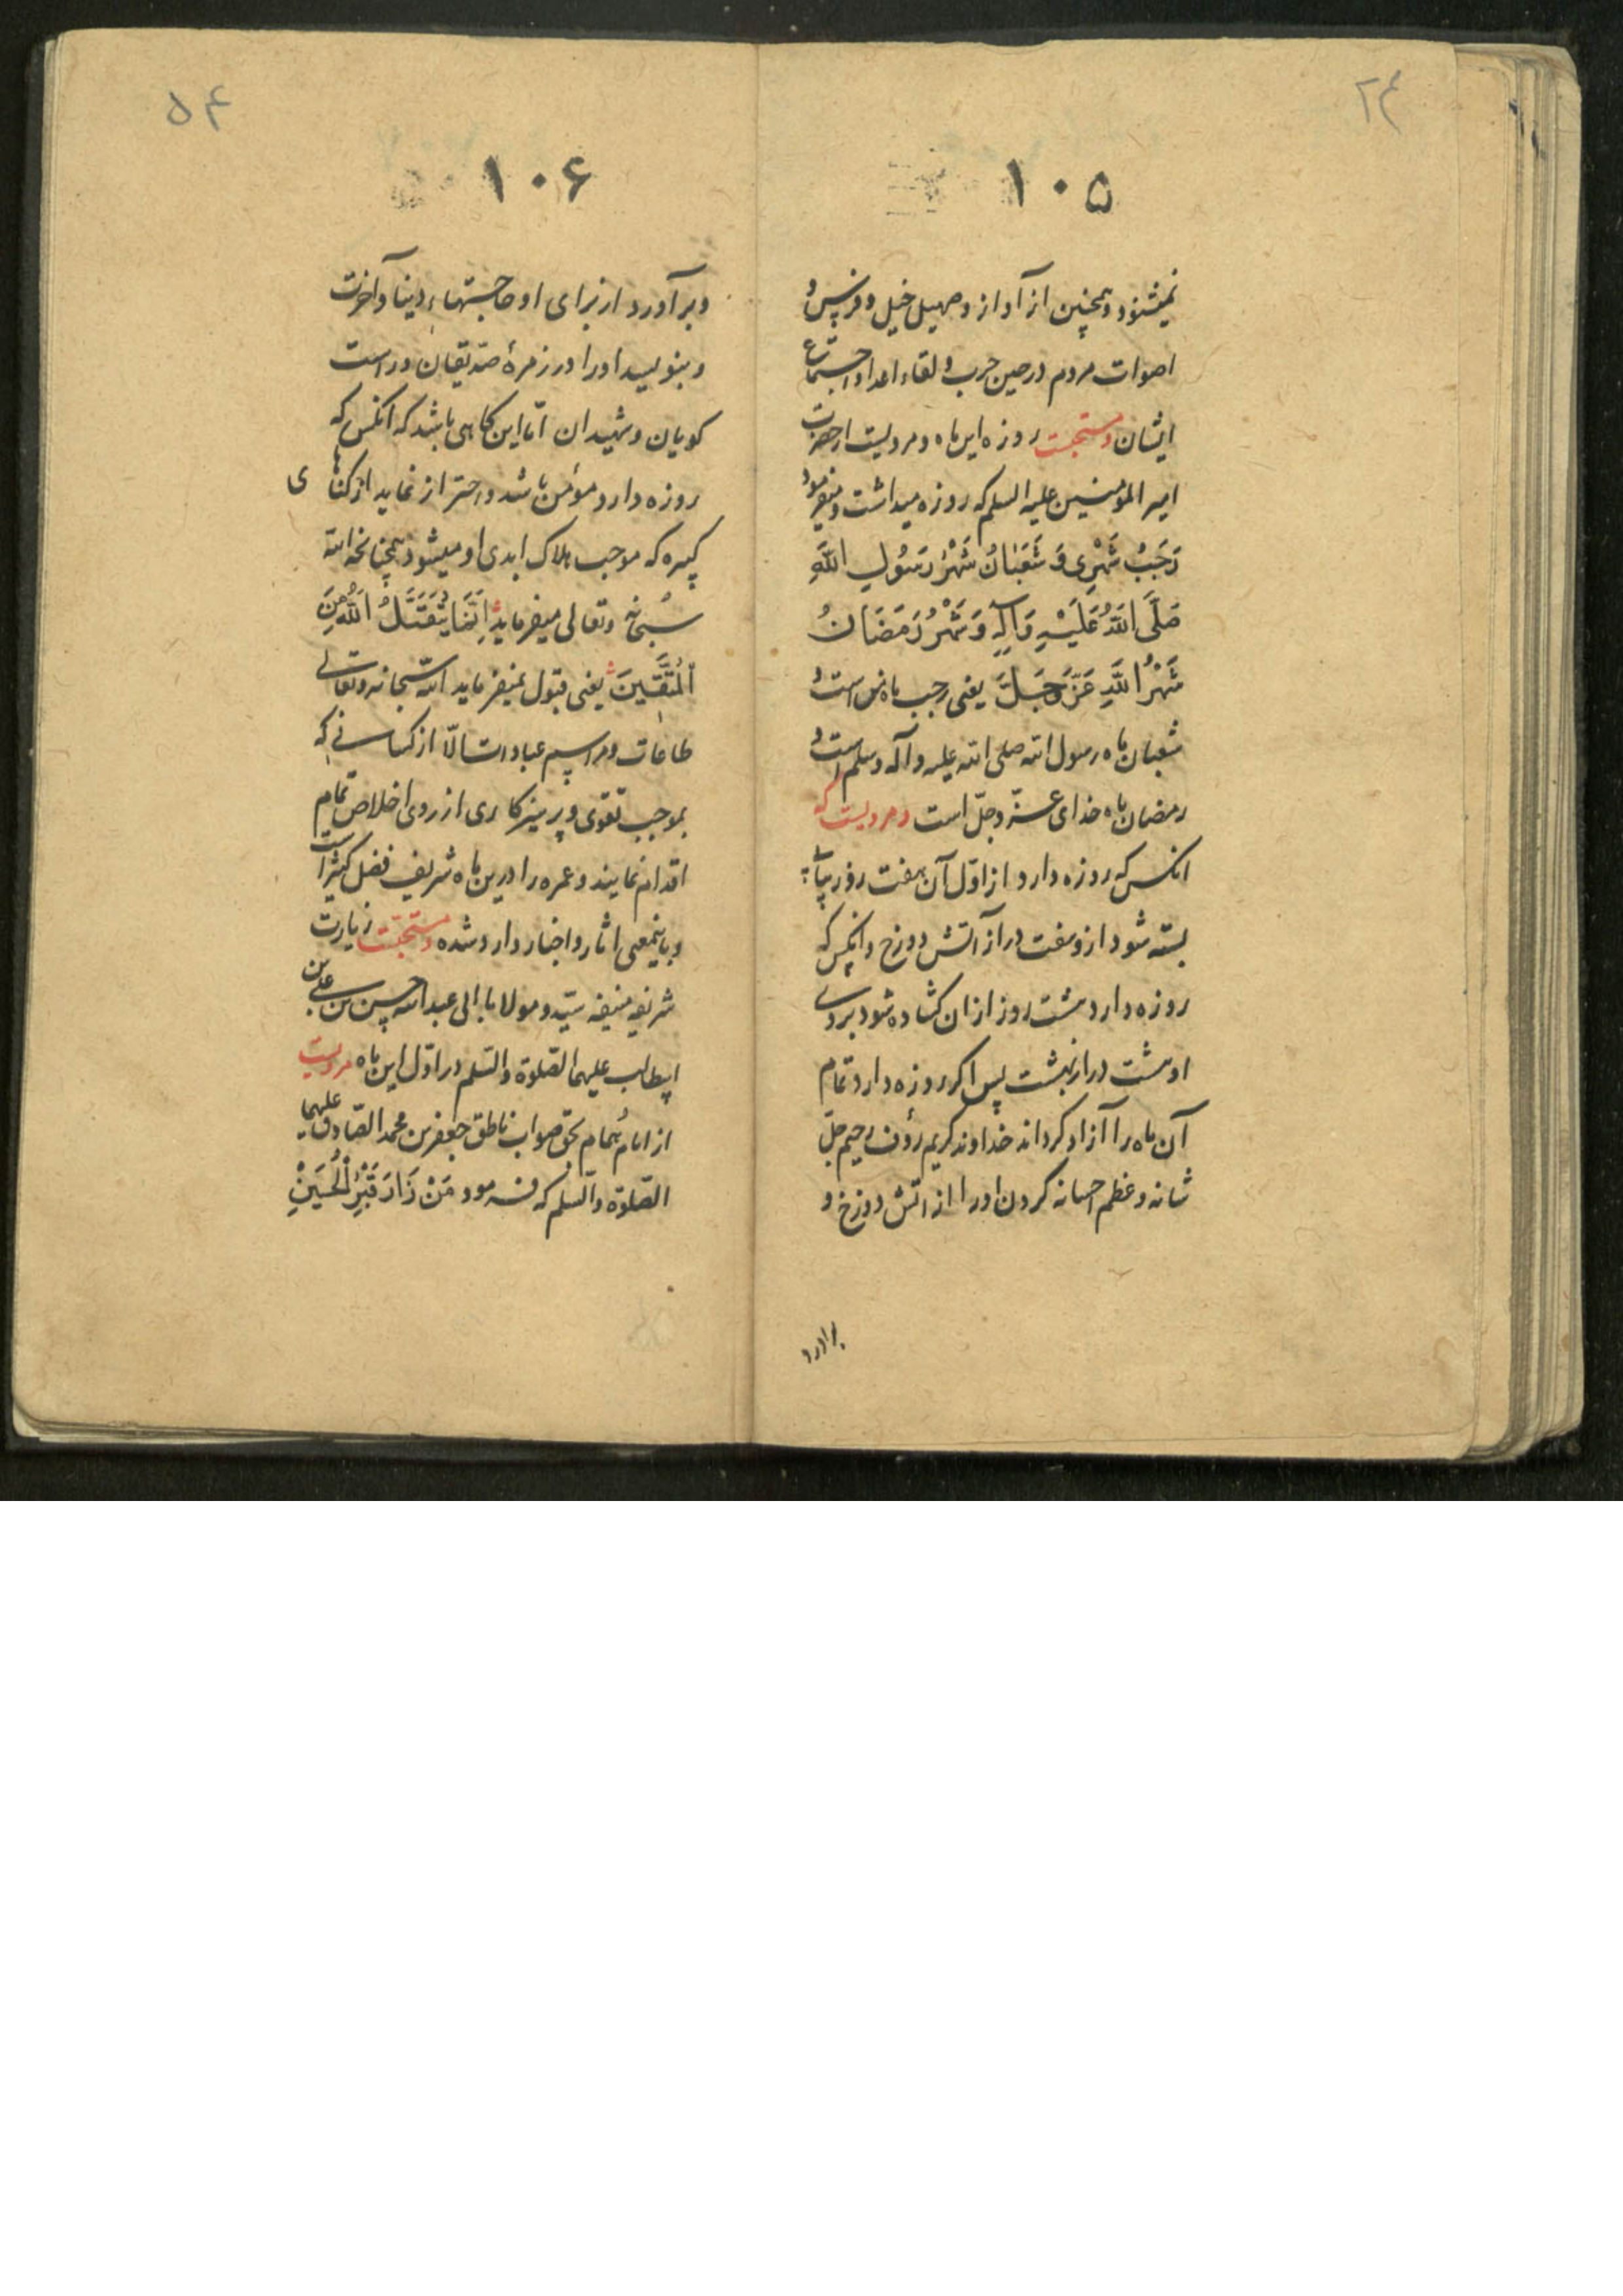 ۲۴
۱۰۵
نمیشنود و همچنین از آواز و صهیل خیل و فرس و
اصوات مردم در حین حرب و لقاء اعدا و اجتماع
ایشان و مستحبست روزه این ماه و مرویست از حضرت
امیر المومنین علیه السلم که روزه میداشت و میفرمود
رَجَبُ شَهْرِی وَ شَعْبَانُ شَهْرُ رَسُولِ اللَّهِ
صَلَّی اللَّهُ عَلَیْهِ وَآلِهِ وَ شَهْرُ رَمَضَانُ
شَهْرُ اللَّهِ عَزَّ وَجَلَّ یعنی رجب ماه من است و
شعبان ماه رسول الله صلی الله علیه و آله و سلم است و
رمضان ماه خدای عزّ و جلّ است و مرویست که
انکس که روزه دارد از اوّل آن هفت روز پیاپی
بسته شود ازو هفت در از آتش دوزخ و انکس که
روزه دارد هشت روز ازان کشاده شود بروی
او هشت در از بهشت پس اکر روزه دارد تمام
آن ماه را آزاد کرداند خداوند کریم رؤف رحیم جلّ
شانه و عظم احسانه کردن او را از اتش دوزخ و
برآورد
۵۴
۱۰۶
و برآورد از برای او حاجتهاء دنیا و آخرت
و بنویسد او را در زمرهٔ صدّیقان و راست
کویان و شهیدان امّا این کاهی باشد که انکس که
روزه دارد مؤمن باشد و احتراز نماید از کناهی
کبیره که موجب هلاک ابدی او میشود همچنانکه الله
سبحانه و تعالی میفرماید اِنَّمَا یَتَقَبَّلُ اللَّهُ مِنَ
الْمُتَّقِینَ یعنی قبول نمیفرماید الله سبحانه و تعالی
طاعات و مراسم عبادات الّا از کسانی که
بموجب تقوی و پرهیزکاری از روی اخلاص تمام
اقدام نمایند و عمره را درین ماه شریف فضل کثیر است
و باینمعنی اثار و اخبار وارد شده و مستحبست زیارت
شریفه منیفه سیّد و مولانا ابی عبدالله حسین بن علی بن
ابیطالب علیهما الصّلوة والسّلم در اوّل این ماه مرویست
از امام هُمام بحق صواب ناطق جعفر بن محمد الصّادق علیهما
الصّلوة والسّلم که فرمود مَنْ زَارَ قَبْرَ الْحُسَیْنِ